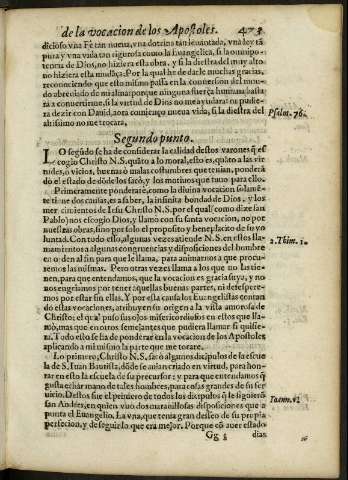 de la vocacion de los Apostoles. 473
dicioso vna Fè tan nueua, vna dotrina tan leuantada, vna ley tã
pura y vna vida tan rigurosa como la Euangelica, si la omnipo-
tencia de Dios, no hiziera esta obra, y si la diestra del muy alto
no hiziera esta mudãça; Por la qual he de darle muchas gracias,
reconociendo que esto mismo passa en la conuersion del mun-
do abreuiado de mi alma; porque ninguna fuerça humana basta-
ra a conuertirme, si la virtud de Dios no me ayudara: ni pudie-
ra dezir con Dauid, aora comienço nueua vida, si la diestra del
altissimo no me tocara.
Psalm. 76.
Segundo punto.
LO segũdo se ha de considerar la calidad destos varones q̃ es
cogio Christo N. S. quãto a lo moral, esto es, quãto a las vir
tudes, o vicios, buenas o malas costumbres que tenian, ponderã
do el estado de dõde los sacò, y los motiuos que tuuo para ello.
Primeramente ponderarè, como la diuina vocacion solamẽ
te tiene dos causas, es a saber, la infinita bondad de Dios, y los
merecimientos de Iesu Christo N. S. por el qual (como dize san
Pablo) nos escogio Dios, y llamò con su santa vocacion, no por
nuestras obras, sino por solo el proposito y beneplacito de su vo
luntad. Con todo esso, algunas vezes atiende N. S. en estos lla-
2. Thim. 1.
mamientos a algunas congruencias y disposiciones del hombre
en orden al fin para que le llama, para animarnos a que procu-
remos las mismas. Pero otras vezes llama a los que no las tie-
nen, para que entendamos, que la vocacion es gracia suya, y no
nos engriamos por tener aquellas buenas partes, ni desespere-
mos por estar sin ellas. Y por esta causa los Euangelistas contan
do estas vocaciones, atribuyen su origen a la vista amorosa de
Christo; el qual puso sus ojos misericordiosos en estos que lla-
mò, mas que en otros semejantes que pudiera llamar si quisie-
ra. Todo esto se ha de ponderar en la vocacion de los Apostoles
aplicando a mi mismo la parte que me tocare.
Lo primero, Christo N. S. sacò algunos dicipulos de la escue
la de S. Iuan Bautista, dõde se auian criado en virtud, para hon-
rar en esto la escuela de su precursor: y para que entendamos q̃
gusta echar mano de tales hombres, para cosas grandes de su ser
uicio. Destos fue el primero de todos los dicipulos q̃ le siguierõ
Ioann. 1.
san Andres, en quien vuo dos marauillosas disposiciones que a
punta el Euangelio. La vna, que tenia gran desseo de su propia
perfecion, y de seguir lo que era mejor. Porque cõ auer estado
Gg 5 dias